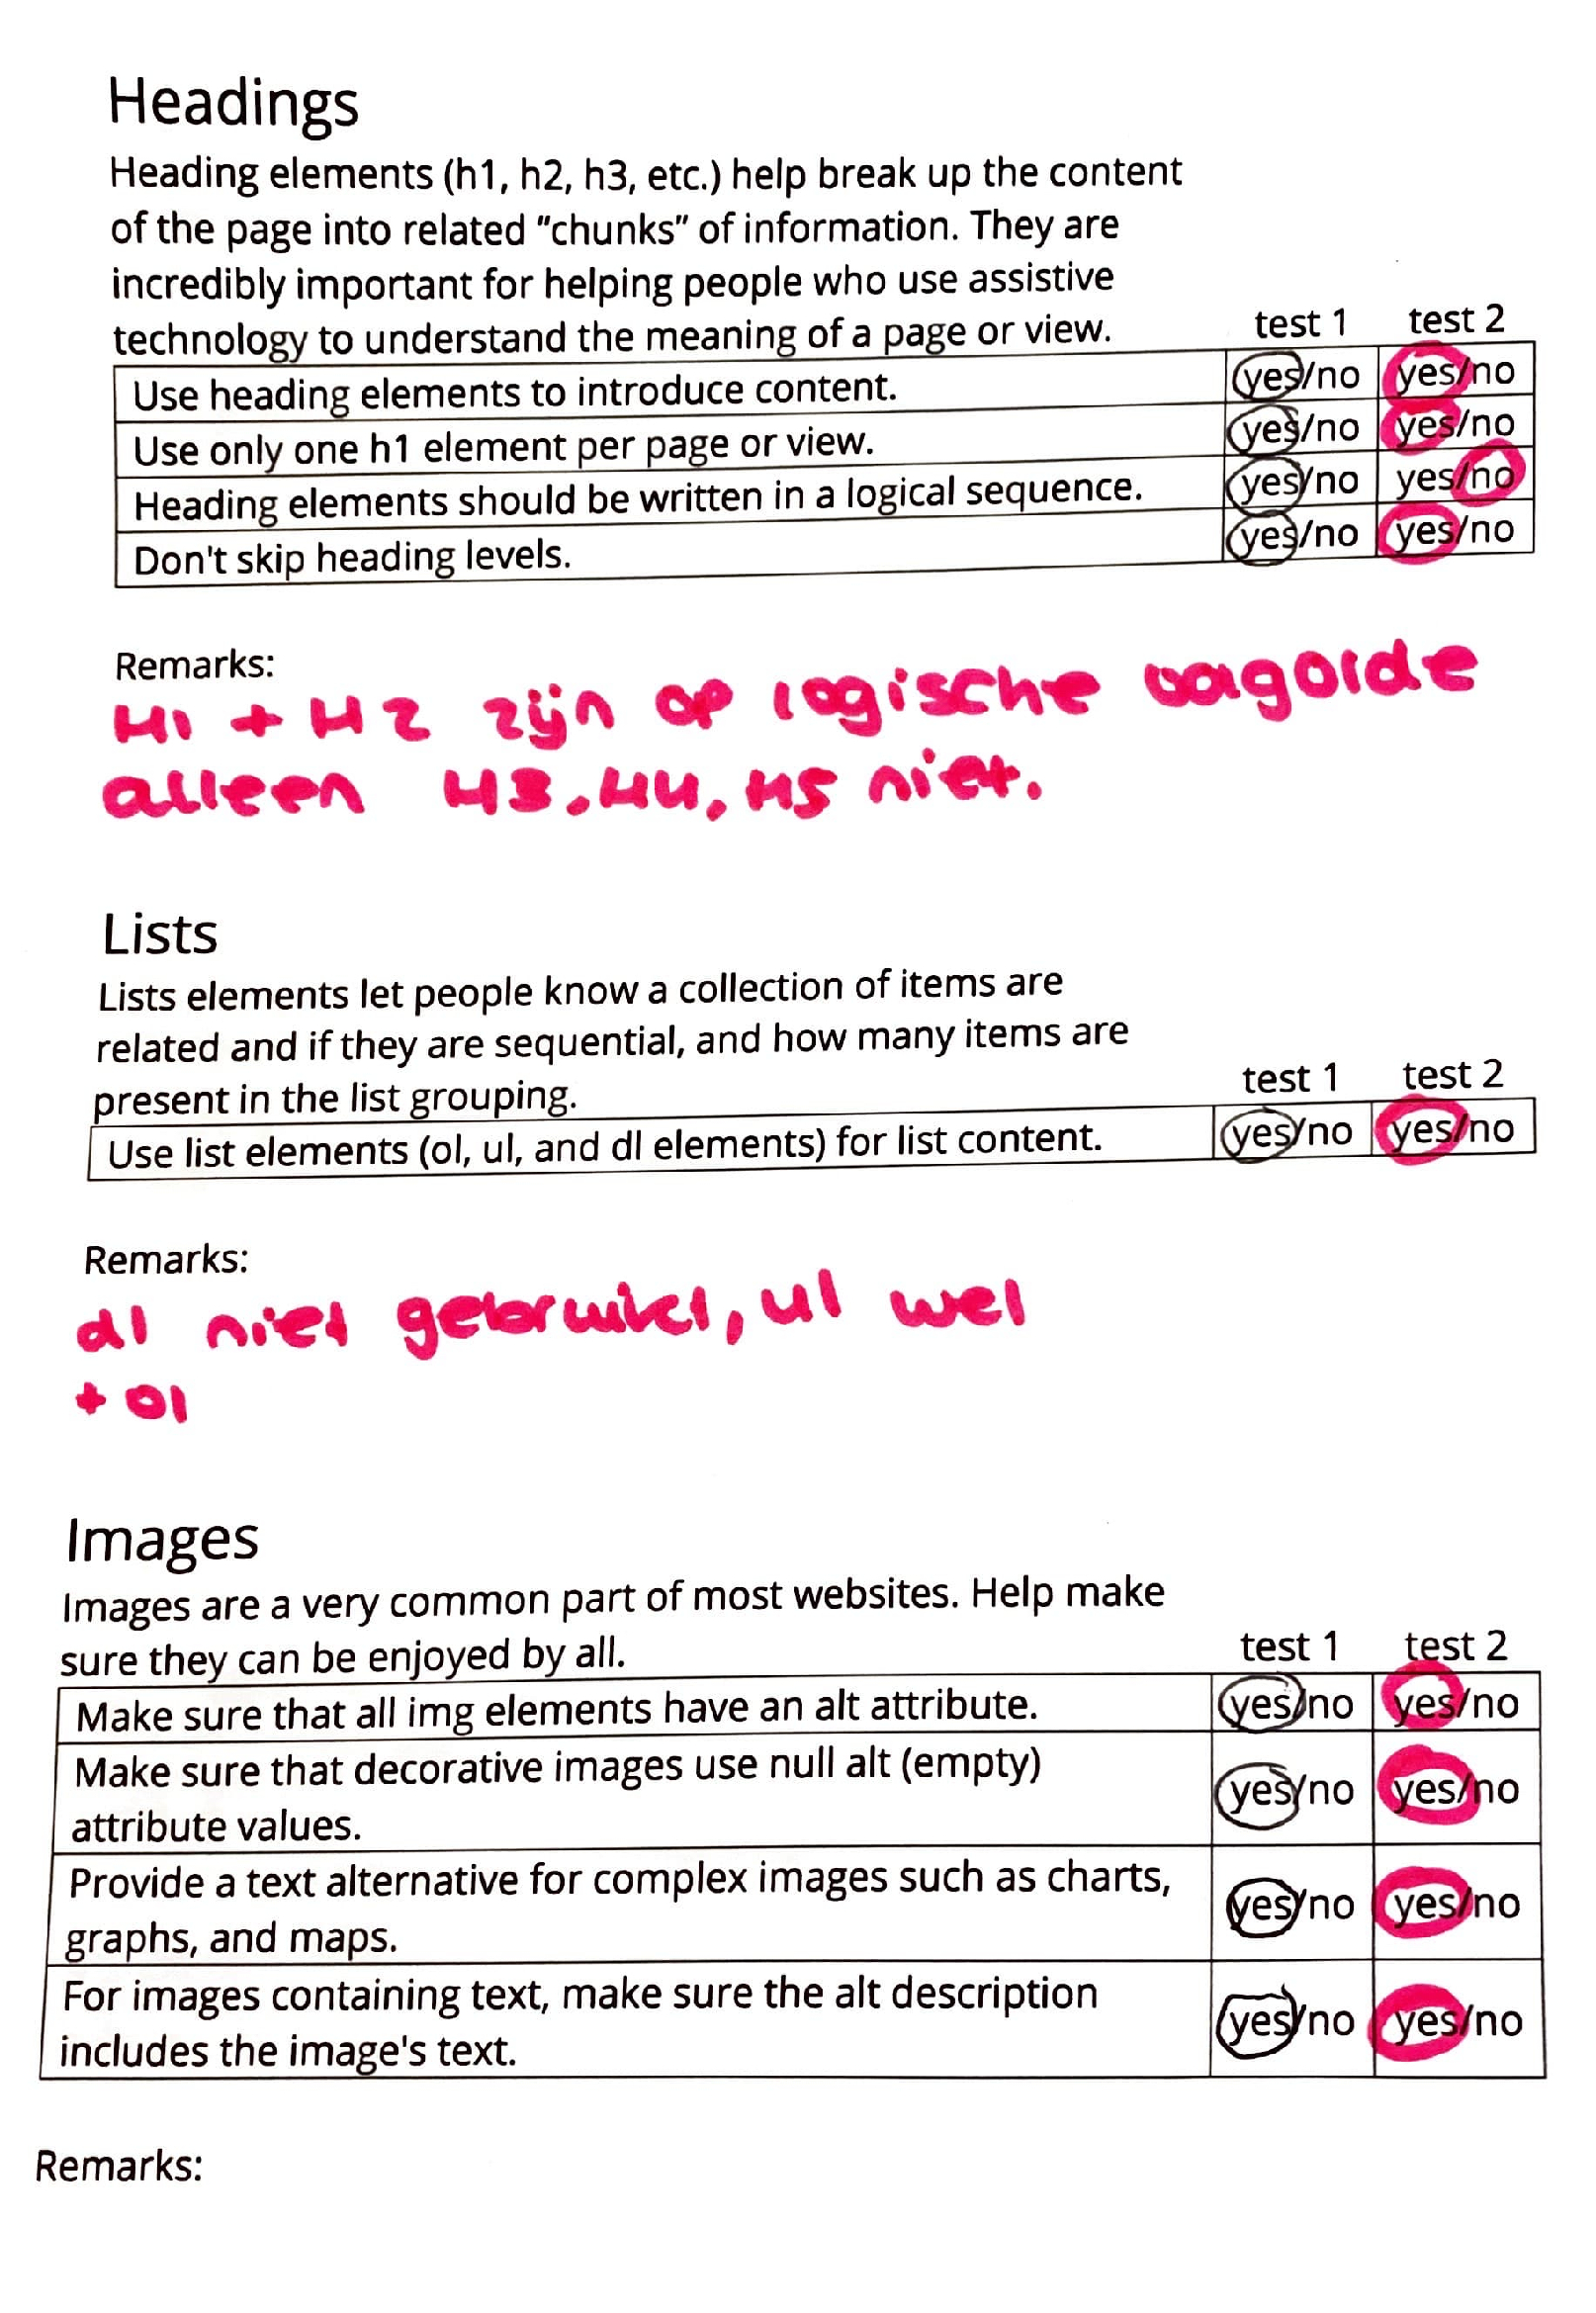 Headings
Heading elements (h1, h2, h3, etc.) help break up the content
of the page into related "chunks" of information. They are
incredibly important for helping people who use assistive
technology to understand the meaning of a page or view.
test 1 test 2
Use heading elements to introduce content. yes/no yes/no
Use only one h1 element per page or view. yes/no yes/no
Heading elements should be written in a logical sequence. yes/no yes/no
Don't skip heading levels. yes/no yes/no
Remarks:
H1 + H2 zijn op logische
alleen H3, H4, H5 niet.
Lists
Lists elements let people know a collection of items are
related and if they are sequential, and how many items are
present in the list grouping.
test 1 test 2
Use list elements (ol, ul, and dl elements) for list content. yes/no yes/no
Remarks:
dl niet gebruikt, ul wel
+ ol
Images
Images are a very common part of most websites. Help make
sure they can be enjoyed by all.
test 1 test 2
Make sure that all img elements have an alt attribute. yes/no yes/no
Make sure that decorative images use null alt (empty)
attribute values. yes/no yes/no
Provide a text alternative for complex images such as charts,
graphs, and maps. yes/no yes/no
For images containing text, make sure the alt description
includes the image's text. yes/no yes/no
Remarks: